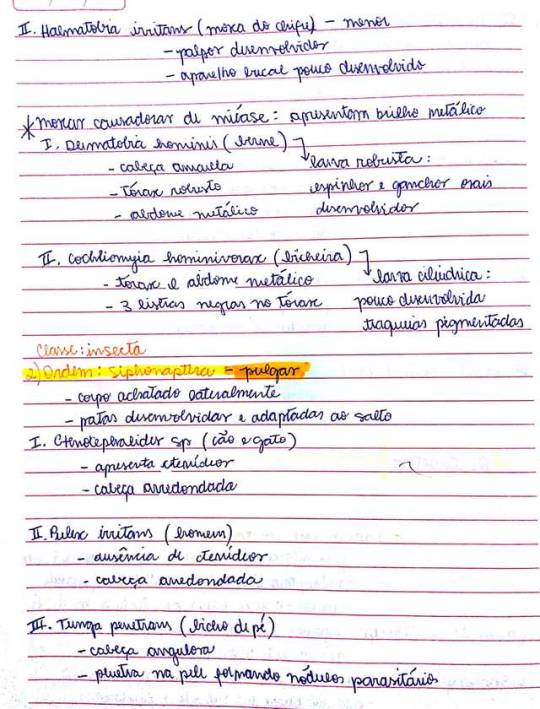 II. Haematobia irritans (mosca do chifre) - menor
- palpos desenvolvidos
- aparelho bucal pouco desenvolvido
* moscas causadoras de miíase: apresentam brilho metálico
I. Dermatobia hominis (berne)
- cabeça amarela
- tórax robusto
- abdome metálico
larva robusta:
espinhos e ganchos orais
desenvolvidos
II. Cochliomyia hominivorax (bicheira)
- tórax e abdome metálico
- 3 listras negras no tórax
larva cilíndrica:
pouco desenvolvida
traqueias pigmentadas
Classe: insecta
2) Ordem: siphonaptera = pulgas
- corpo achatado lateralmente
- patas desenvolvidas e adaptadas ao salto
I. Ctenocephalides sp (cão e gato)
- apresenta ctenídeos
- cabeça arredondada
II. Pulex irritans (homem)
- ausência de ctenídeos
- cabeça arredondada
III. Tunga penetrans (bicho de pé)
- cabeça angulosa
- penetra na pele formando nódulos parasitários